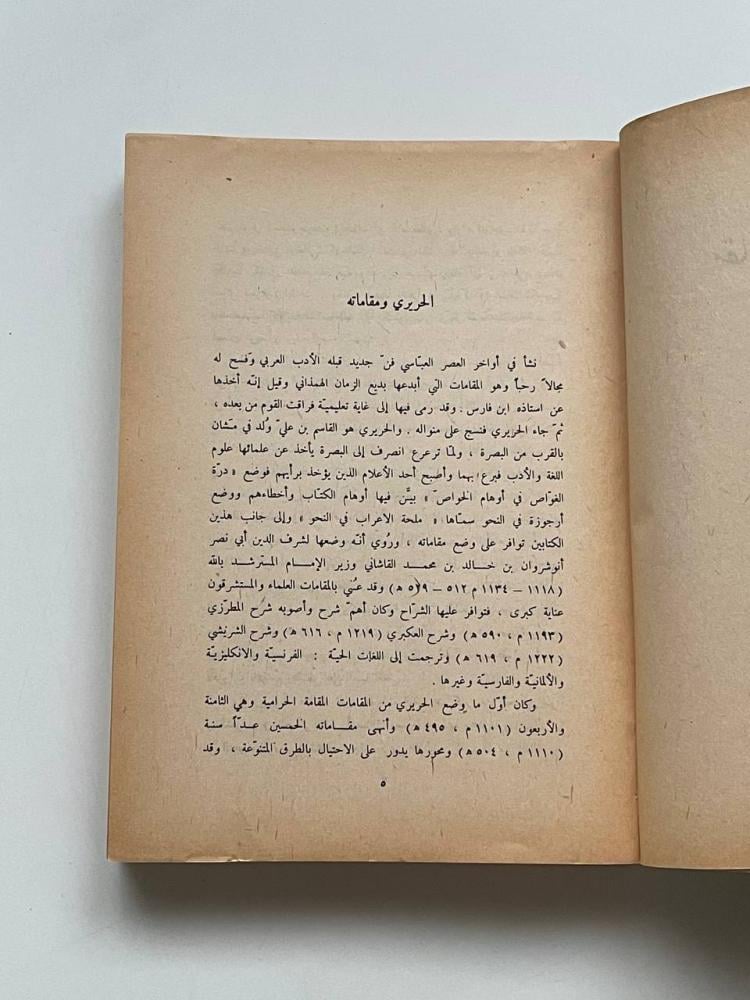 الحريري ومقاماته
نشأ في أواخر العصر العبّاسي فنّ جديد قبله الأدب العربي وفسح له
مجالاً رحباً وهو المقامات التي أبدعها بديع الزمان الهمذاني وقيل إنّه أخذها
عن استاذه ابن فارس . وقد رمى فيها إلى غاية تعليميّة فراقت القوم من بعده ،
ثمّ جاء الحريري فنسج على منواله . والحريري هو القاسم بن عليّ وُلد في مَشان
بالقرب من البصرة ، ولمّا ترعرع انصرف إلى البصرة يأخذ عن علمائها علوم
اللغة والأدب فبرع بهما وأصبح أحد الأعلام الذين يؤخذ برأيهم فوضع « درّة
الغوّاص في أوهام الخواصّ » بيّن فيها أوهام الكتّاب وأخطاءهم ووضع
أرجوزة في النحو سمّاها « ملحة الاعراب في النحو » وإلى جانب هذين
الكتابين توافر على وضع مقاماته ، ورُوي أنّه وضعها لشرف الدين أبي نصر
أنوشروان بن خالد بن محمد القاشاني وزير الإمام المسترشد بالله
(١١١٨ – ١١٣٤ م ٥١٢ – ٥٢٩ ه) وقد عُني بالمقامات العلماء والمستشرقون
عناية كبرى ، فتوافر عليها الشرّاح وكان أهمّ شرح وأصوبه شرح المطرّزي
(١١٩٣ م ، ٥٩٠ ه) وشرح العكبري (١٢١٩ م ، ٦١٦ ه) وشرح الشريشي
(١٢٢٢ م ، ٦١٩ ه) وترجمت إلى اللغات الحيّة : الفرنسيّة والانكليزيّة
والألمانيّة والفارسيّة وغيرها .
وكان أوّل ما وضع الحريري من المقامات المقامة الحرامية وهي الثامنة
والأربعون (١١٠١ م ، ٤٩٥ ه) وأنهى مقاماته الخمسين عدّاً سنة
(١١١٠ م ، ٥٠٤ ه) ومحورها يدور على الاحتيال بالطرق المتنوّعة ، وقد
٥